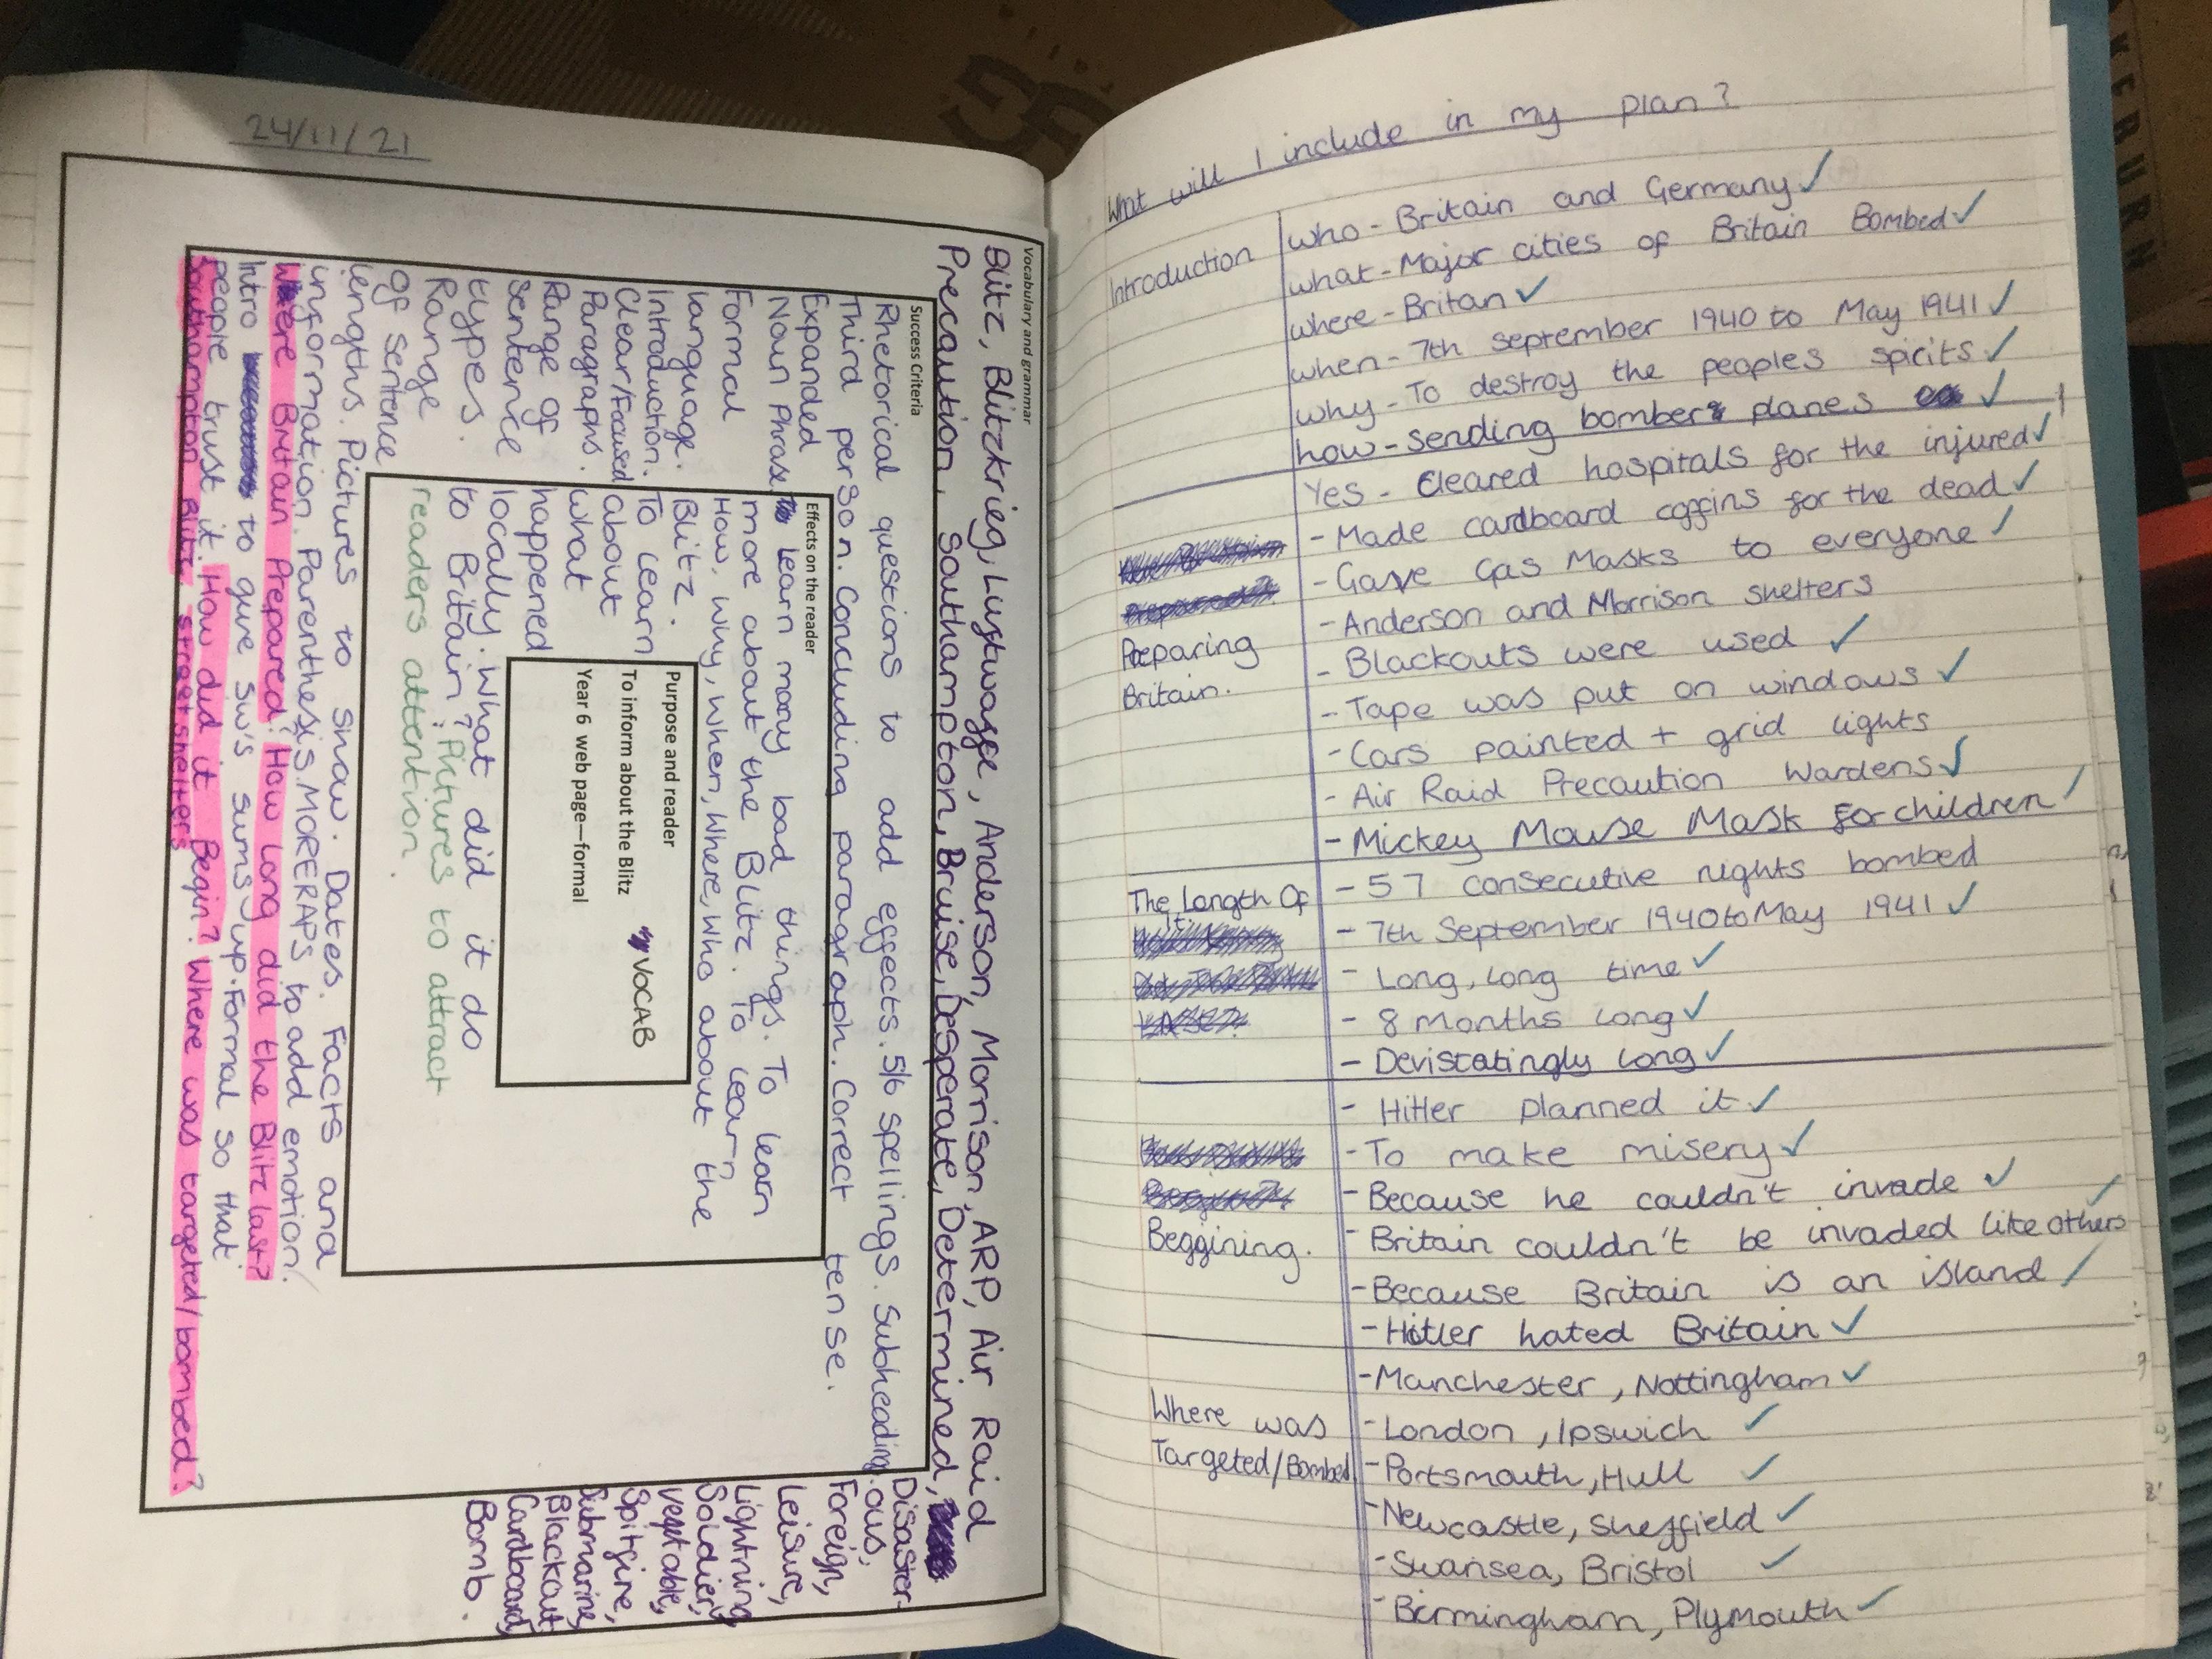 24/11/21
Vocabulary and grammar
Blitz, Blitzkrieg, Luftwaffe, Anderson, Morrison, ARP, Air Raid
Precaution, Southampton, Bruise, Desperate, Determined,
Disaster-
ous,
Foreign,
Leisure,
Lightning,
Soldier,
vegetable,
Spitfire,
Submarine,
Blackout
Cardboard,
Bomb.
Success Criteria
Rhetorical questions to add effects. 5/6 spellings. Subheading.
Third person. Concluding paragraph. Correct tense.
Expanded
Noun Phrase
Formal
language.
Introduction.
Clear/Focused
Paragraphs.
Range of
sentence
types.
Range
of sentence
lengths. Pictures to show. Dates. Facts and
information. Parenthesis. MORERAPS to add emotion.
Where Britain Prepared? How long did the Blitz last?
Intro to give sw's sums up. Formal so that
people trust it. How did it Begin? Where was targeted/bombed?
Southampton Blitz, street shelters
Effects on the reader
Learn many bad things. To learn
more about the Blitz. To learn
How, why, when, Where, Who about the
Blitz.
To learn
about
what
happened
locally. What did it do
to Britain? Pictures to attract
readers attention.
Purpose and reader
To inform about the Blitz VOCAB
Year 6 web page—formal
What will I include in my plan?
Introduction
who - Britain and Germany ✓
what - Major cities of Britain Bombed ✓
where - Britan ✓
when - 7th september 1940 to May 1941 ✓
why - To destroy the peoples spirits ✓
how - sending bomber planes ✓
Preparing
Britain.
Yes - Cleared hospitals for the injured ✓
- Made cardboard coffins for the dead ✓
- Gave Gas Masks to everyone ✓
- Anderson and Morrison shelters
- Blackouts were used ✓
- Tape was put on windows ✓
- Cars painted + grid lights
- Air Raid Precaution Wardens ✓
- Mickey Mouse Mask for children ✓
The Length Of
it:
- 57 consecutive nights bombed
- 7th September 1940 to May 1941 ✓
- Long, long time ✓
- 8 months long ✓
- Devistatingly long ✓
Beggining.
- Hitler planned it ✓
- To make misery ✓
- Because he couldn't invade ✓
- Britain couldn't be invaded like others ✓
- Because Britain is an island ✓
- Hitler hated Britain ✓
Where was
Targeted/Bombed
- Manchester, Nottingham ✓
- London, Ipswich ✓
- Portsmouth, Hull ✓
- Newcastle, Sheffield ✓
- Swansea, Bristol ✓
- Birmingham, Plymouth ✓